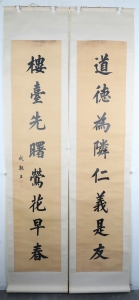 道德為隣仁義是友
樓臺先曙鶯花早春
成親王